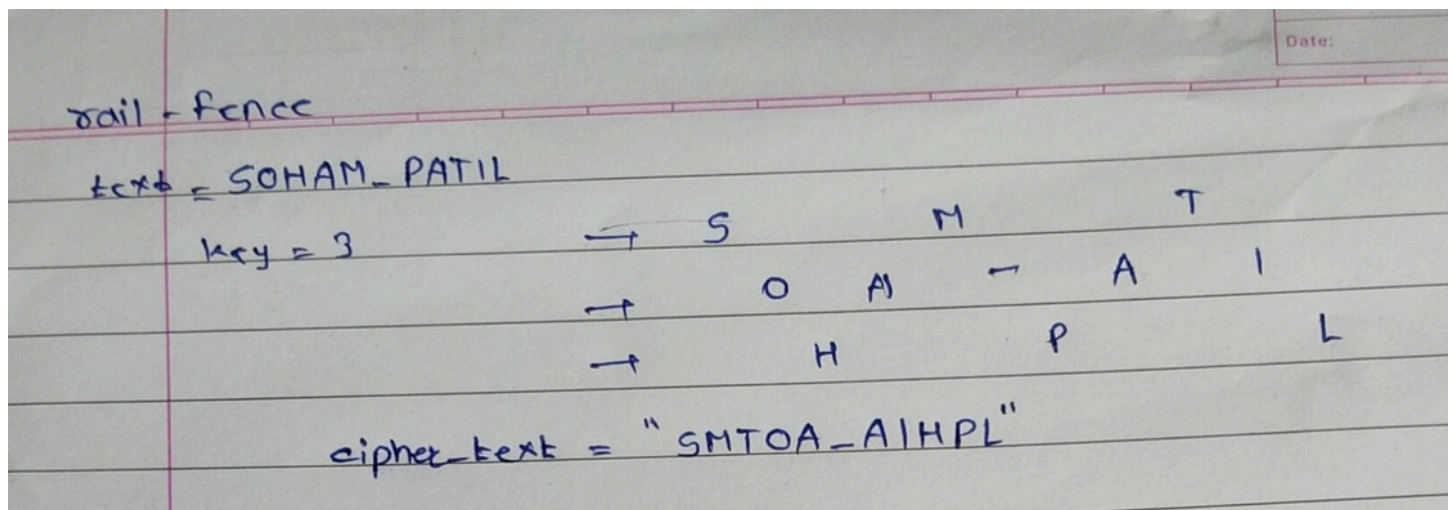 Date:
rail-fence
text = SOHAM_PATIL
key = 3 → S M T
→ O A - A I
→ H P L
cipher_text = "SMTOA_AIHPL"